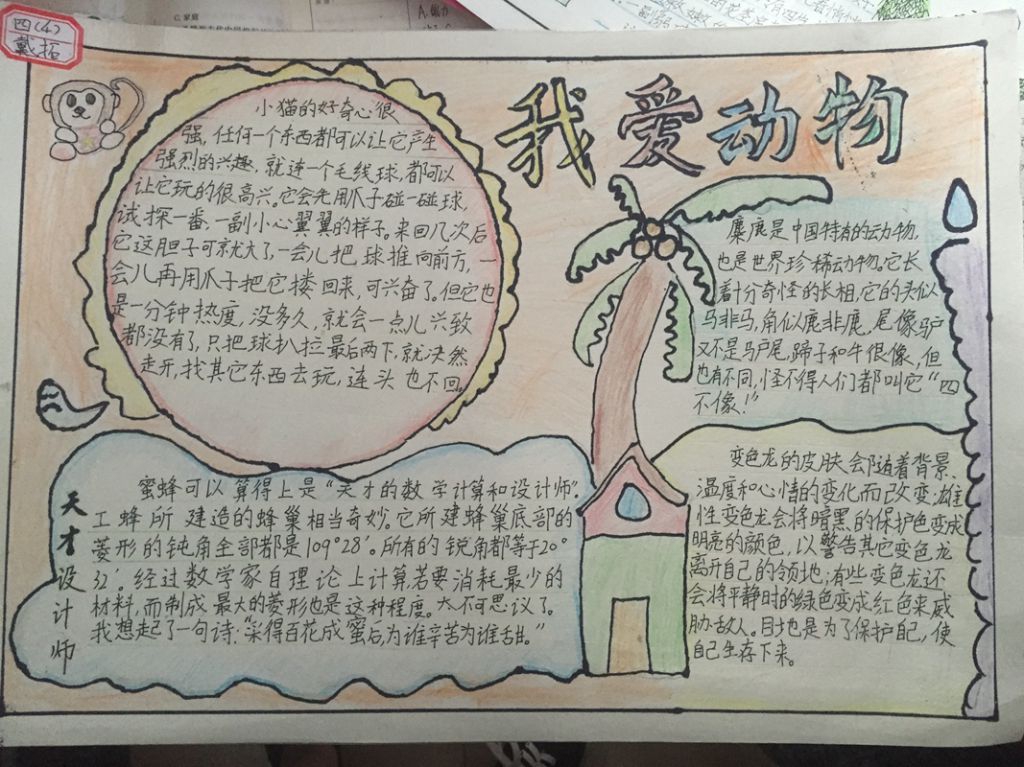 四(4)
戴拓
我爱动物
小猫的好奇心很
强,任何一个东西都可以让它产生
强烈的兴趣,就连一个毛线球,都可以
让它玩的很高兴。它会先用爪子碰一碰球,
试探一番,一副小心翼翼的样子。来回几次后
它这胆子可就大了,一会儿把球推向前方,一
会儿再用爪子把它搂回来,可兴奋了。但它也
是一分钟热度,没多久,就会一点儿兴致
都没有了,只把球扒拉最后两下,就决然
走开,找其它东西去玩,连头也不回。
麋鹿是中国特有的动物,
也是世界珍稀动物。它长
着十分奇怪的长相,它的头似
马非马,角似鹿非鹿,尾像驴
又不是驴尾,蹄子和牛很像,但
也有不同,怪不得人们都叫它“四
不像!”
天才设计师
蜜蜂可以算得上是“天才的数学计算和设计师”。
工蜂所建造的蜂巢相当奇妙。它所建蜂巢底部的
菱形的钝角全部都是109°28′。所有的锐角都等于20°
32′。经过数学家自理论上计算若要消耗最少的
材料,而制成最大的菱形也是这种程度。太不可思议了。
我想起了一句诗:“采得百花成蜜后,为谁辛苦为谁甜。”
变色龙的皮肤会随着背景、
温度和心情的变化而改变;雄
性变色龙会将暗黑的保护色变成
明亮的颜色,以警告其它变色龙
离开自己的领地;有些变色龙还
会将平静时的绿色变成红色来威
胁敌人。目地是为了保护自己,使
自己生存下来。